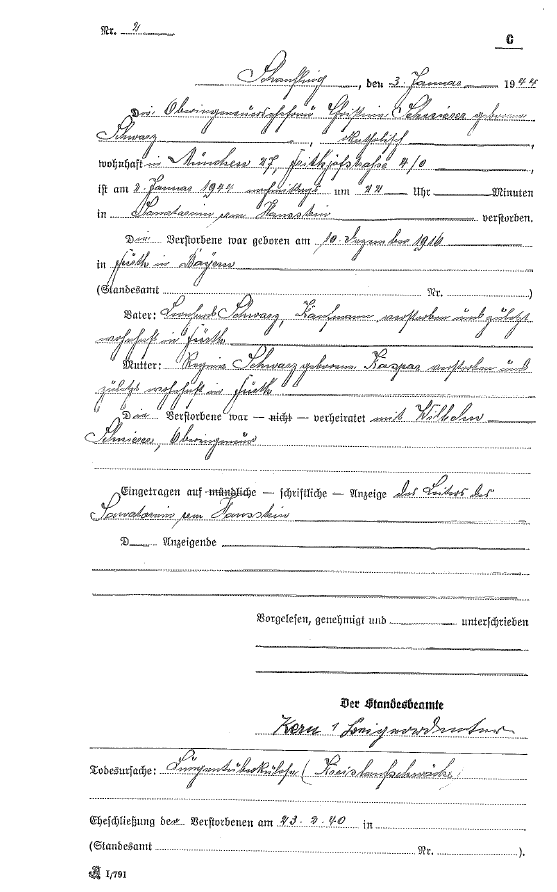 Nr. 2
C
Schaufling, den 3. Januar 1944
Die Oberingenieursehefrau Christina Schnierer geborene
Schwarz, katholisch,
wohnhaft in München 27, Frithjofstrasse 4/0
ist am 2. Januar 1944 nachmittags um 22 Uhr Minuten
in Sanatorium am Hausstein verstorben.
Die Verstorbene war geboren am 10. Dezember 1916
in Fürth in Bayern
(Standesamt Nr. )
Vater: Schwarz, Kaufmann, verstorben und zuletzt
wohnhaft in Fürth
Mutter: Regina Schwarz geborene Kaspar verstorben und
zuletzt wohnhaft in Fürth
Die Verstorbene war — nicht — verheiratet mit Wilhelm
Schnierer, Oberingenieur
Eingetragen auf mündliche — schriftliche — Anzeige des Leiters des
Sanatorium am Hausstein
D Anzeigende
Vorgelesen, genehmigt und unterschrieben
Der Standesbeamte
Kern 1 Beigeordneter
Todesursache: Lungentuberkulose (Kreislaufschwäche)
Eheschließung der Verstorbenen am 23. 2. 40 in
(Standesamt Nr. ).
I/791